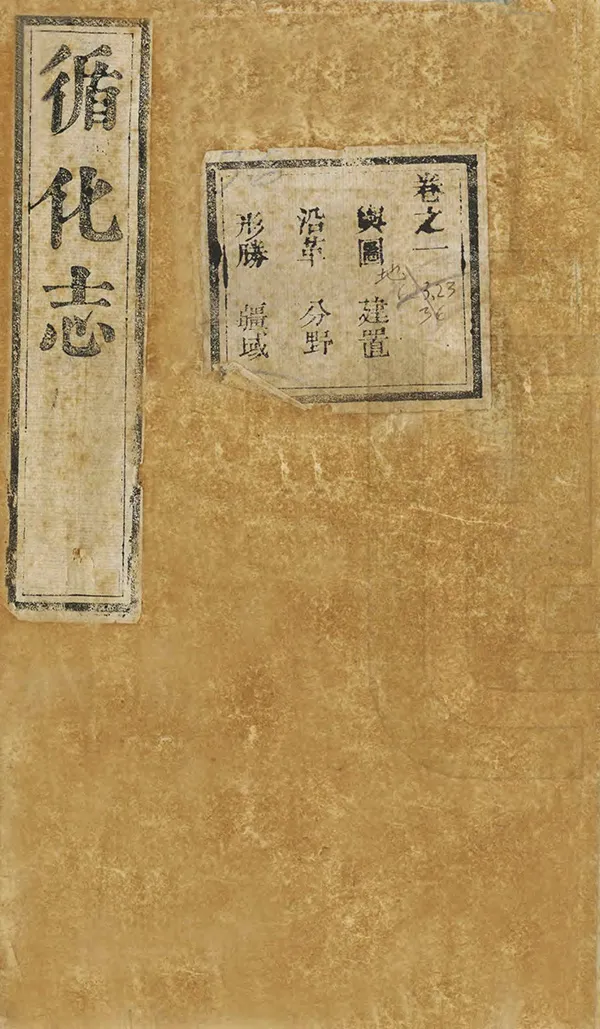 循化志
卷之一
輿圖 建置
沿革 分野
形勝 疆域
地
3.23
36